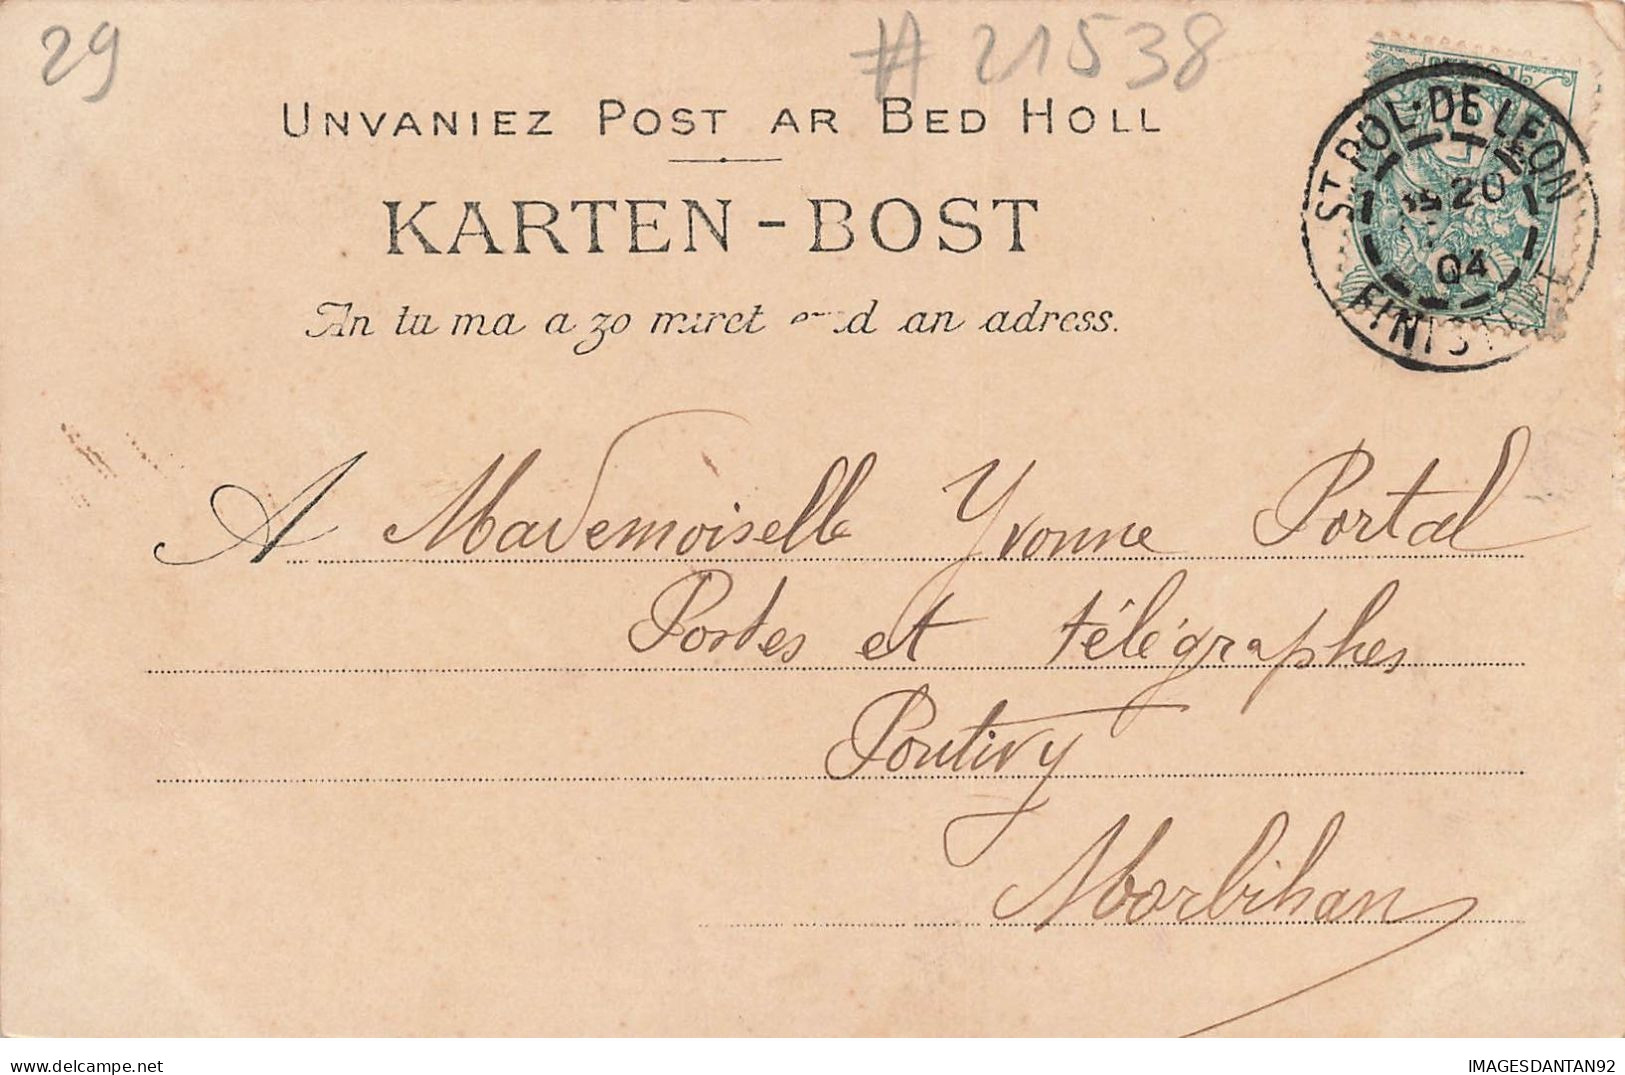 29
# 21538
UNVANIEZ POST AR BED HOLL
KARTEN-BOST
An tu ma a zo miret an adress.
ST POL-DE LEON
20
04
FINISTERE
A Mademoiselle Yvonne Portal
Postes et télégraphes
Pontivy
Morbihan
IMAGESDANTAN92